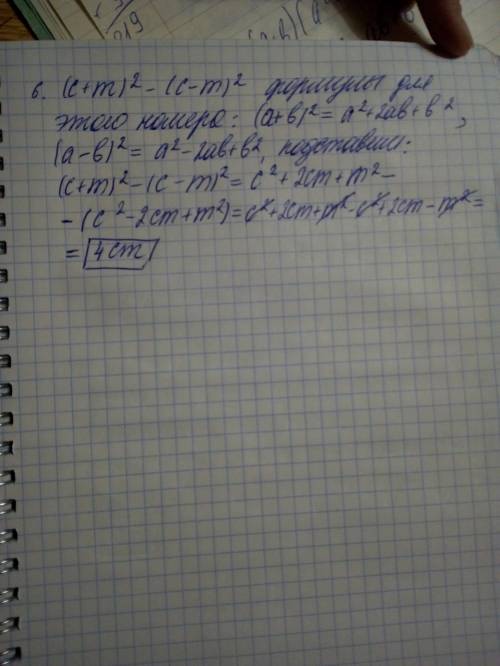 6. (c+m)² - (c-m)² формулы для
этого номера: (а+в)² = а²+2ав+в²,
(а-в)² = а²-2ав+в², подставим:
(c+m)²-(c-m)² = c²+2cm+m²-
-(c²-2cm+m²) = c²+2cm+m²-c²+2cm-m²=
= 4cm